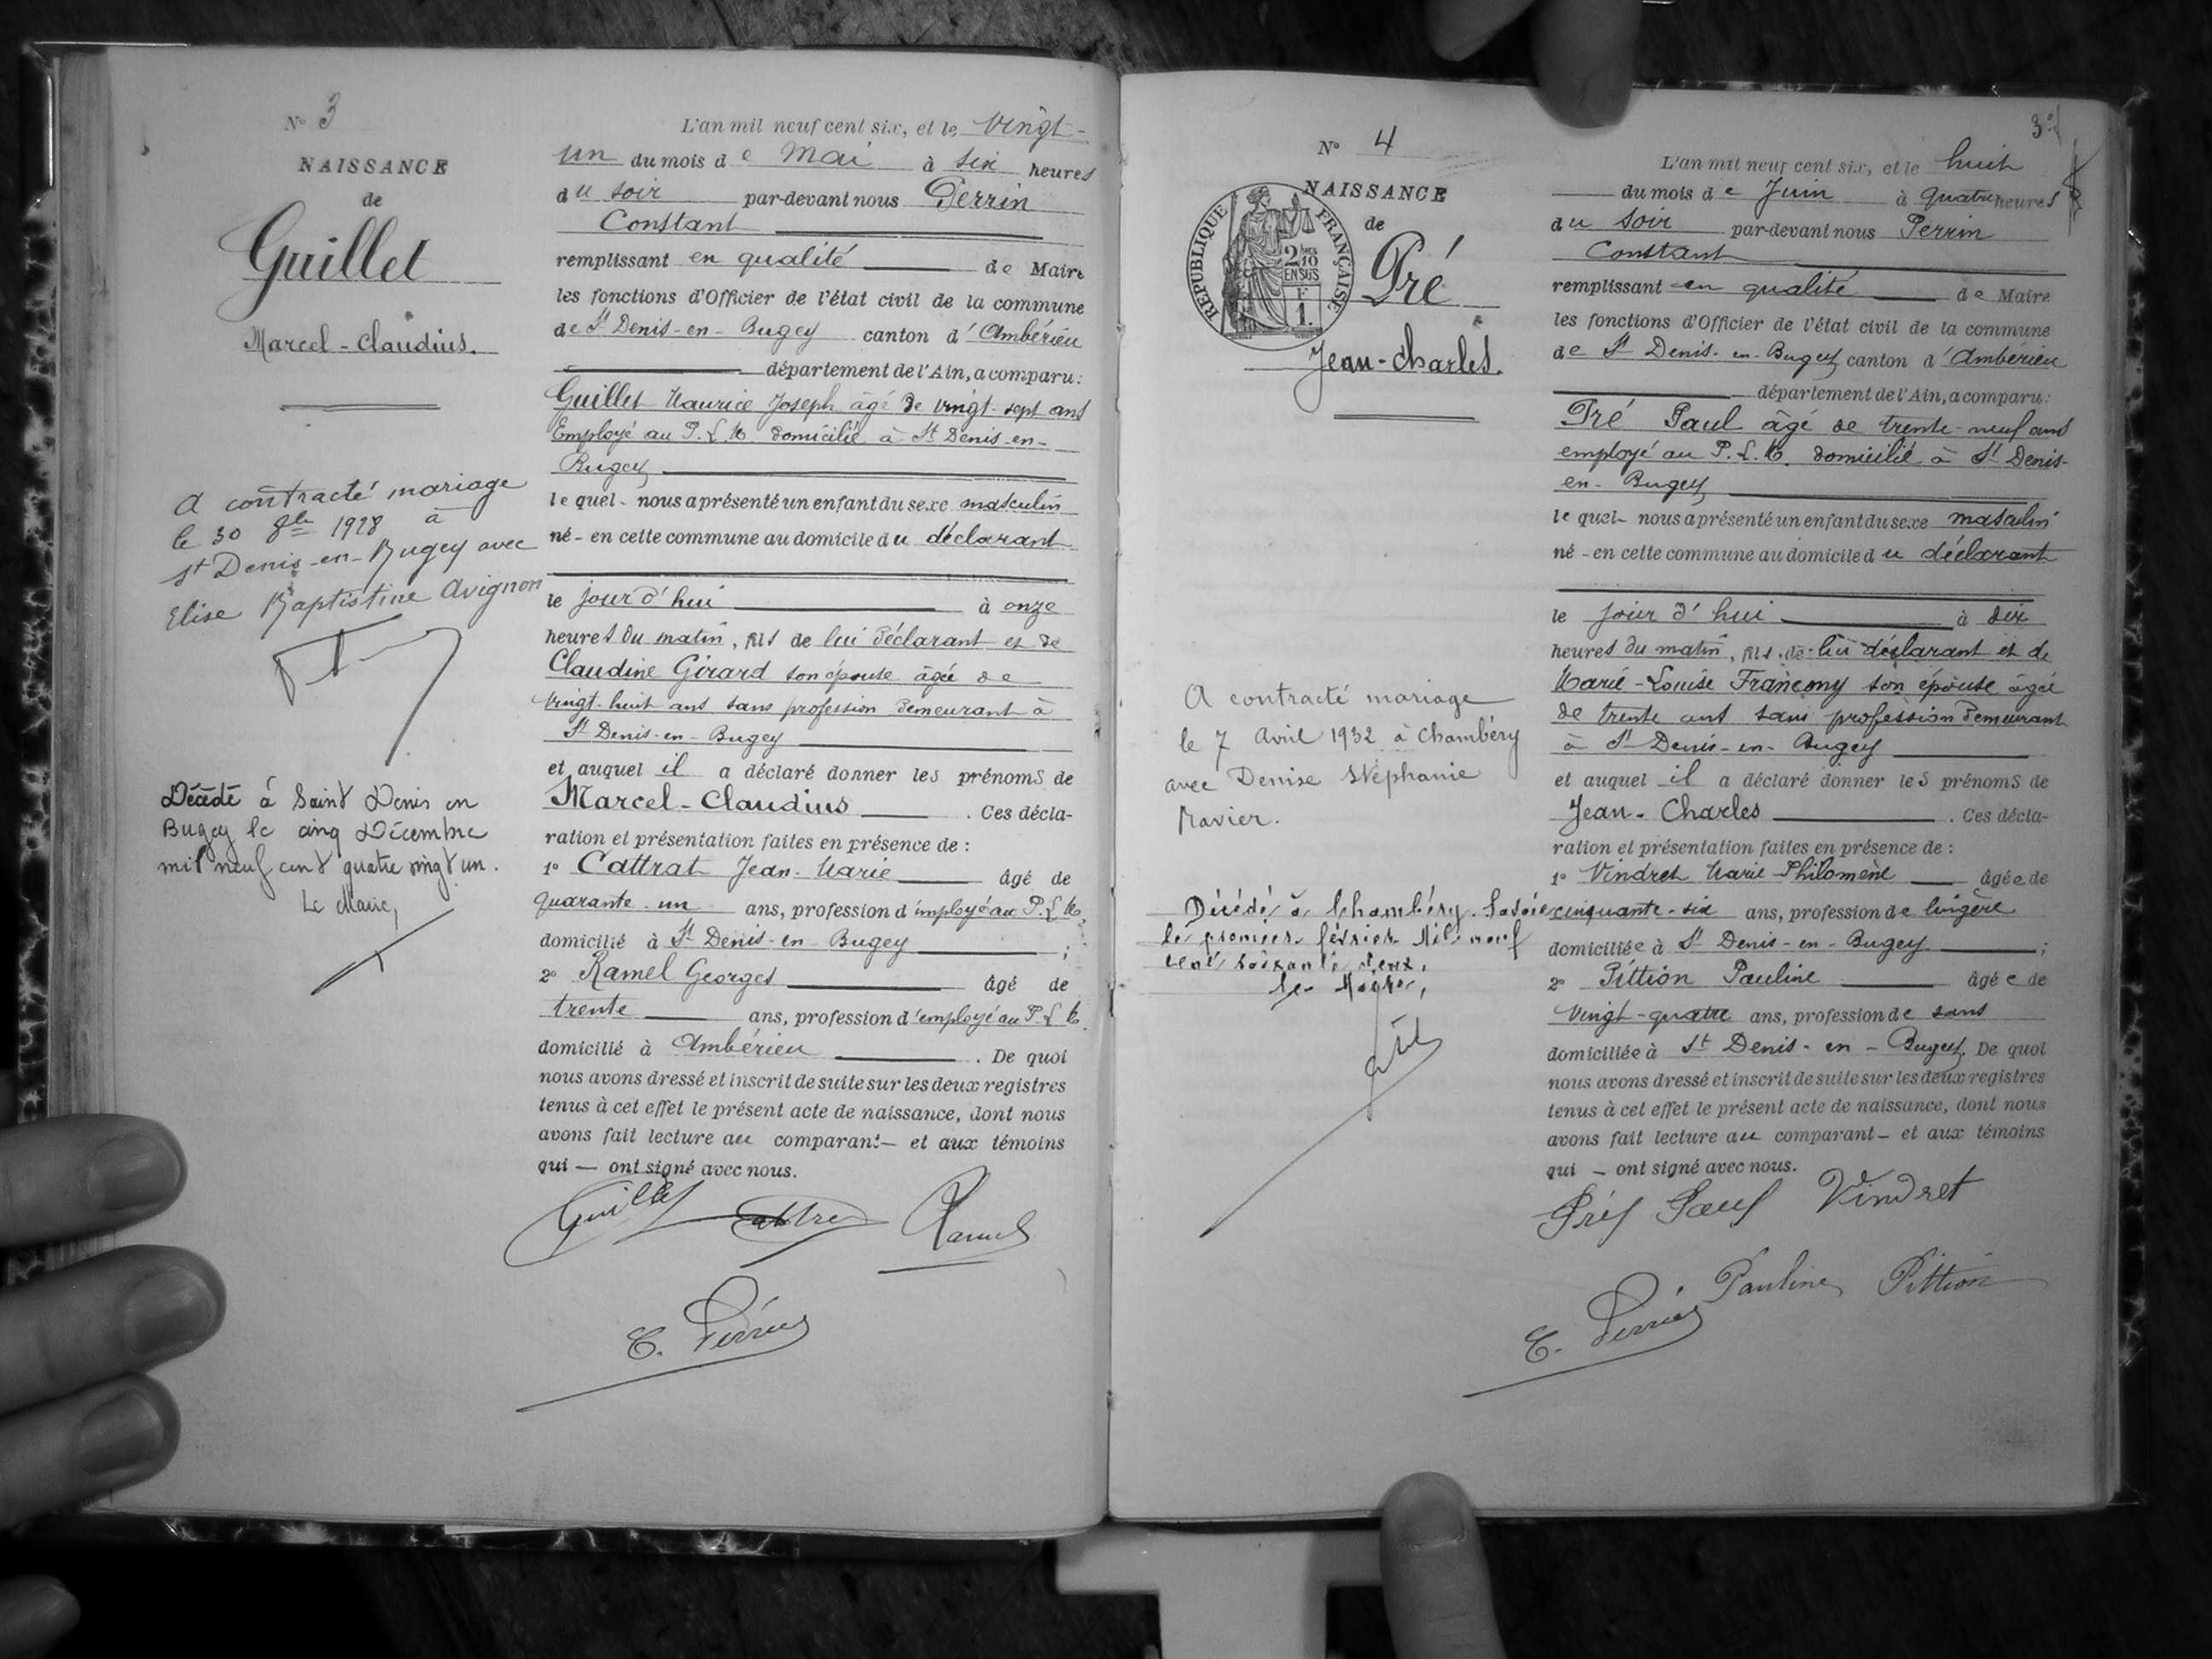 N° 3
NAISSANCE
de
Guillet
Marcel-Claudius.
A contracté mariage
le 30 8bre 1928 à
St Denis-en-Bugey avec
Elise Baptistine Avignon
Décédé à Saint Denis en
Bugey le cinq Décembre
mil neuf cent quatre vingt un.
Le Maire,
L'an mil neuf cent six, et le vingt-
un du mois de Mai à six heures
du soir par-devant nous Perrin
Constant
remplissant en qualité de Maire
les fonctions d'Officier de l'état civil de la commune
de St Denis-en-Bugey canton d'Ambérieu
département de l'Ain, a comparu:
Guillet Maurice Joseph âgé de vingt-sept ans
Employé au P.L.M. domicilié à St Denis-en-
Bugey
lequel- nous a présenté un enfant du sexe masculin
né- en cette commune au domicile du déclarant
le jour d'hui à onze
heures du matin, fils de lui déclarant et de
Claudine Girard son épouse âgée de
vingt-huit ans sans profession demeurant à
St Denis-en-Bugey
et auquel il a déclaré donner les prénoms de
Marcel-Claudius. Ces décla-
ration et présentation faites en présence de :
1° Cattrat Jean-Marie âgé de
quarante-un ans, profession d'employé au P.L.M.
domicilié à St Denis-en-Bugey ;
2° Ramel Georges âgé de
trente ans, profession d'employé au P.L.M.
domicilié à Ambérieu. De quoi
nous avons dressé et inscrit de suite sur les deux registres
tenus à cet effet le présent acte de naissance, dont nous
avons fait lecture au comparant- et aux témoins
qui - ont signé avec nous.
Guillet Cattrat Ramel
C. Perrin
3
N° 4
NAISSANCE
de
RÉPUBLIQUE FRANÇAISE
2/10
EN SUS
1.
Pré
Jean-Charles.
A contracté mariage
le 7 Avril 1932 à Chambéry
avec Denise Stéphanie
Ravier.
Décédé à Chambéry. Savoie
le premier février Mil neuf
cent soixante deux,
L'an mil neuf cent six, et le huit
du mois de Juin à quatre heures
du soir par-devant nous Perrin
Constant
remplissant en qualité de Maire
les fonctions d'Officier de l'état civil de la commune
de St Denis-en-Bugey canton d'Ambérieu
département de l'Ain, a comparu:
Pré Paul âgé de trente-neuf ans
employé au P.L.M. domicilié à St Denis-
en-Bugey
lequel- nous a présenté un enfant du sexe masculin
né - en cette commune au domicile du déclarant
le jour d'hui à dix
heures du matin, fils de lui déclarant et de
Marie-Louise Françony son épouse âgée
de trente ans sans profession demeurant
à St Denis-en-Bugey
et auquel il a déclaré donner les prénoms de
Jean-Charles. Ces décla-
ration et présentation faites en présence de :
1° Vindret Marie Philomène âgée de
cinquante-six ans, profession de lingère
domiciliée à St Denis-en-Bugey ;
2° Pittion Pauline âgée de
vingt-quatre ans, profession de sans
domiciliée à St Denis-en-Bugey. De quoi
nous avons dressé et inscrit de suite sur les deux registres
tenus à cet effet le présent acte de naissance, dont nous
avons fait lecture au comparant - et aux témoins
qui - ont signé avec nous.
Pré Paul Vindret
Pauline Pittion
C. Perrin